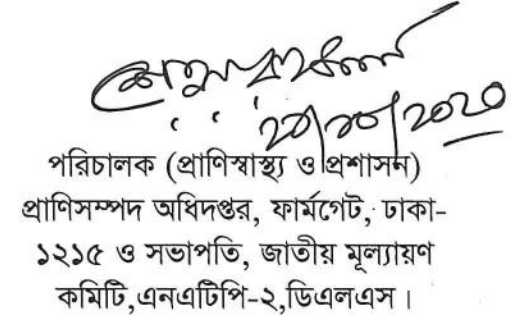 পরিচালক (প্রাণিস্বাস্থ্য ও প্রশাসন)
প্রাণিসম্পদ অধিদপ্তর, ফার্মগেট, ঢাকা-
১২১৫ ও সভাপতি, জাতীয় মূল্যায়ণ
কমিটি,এনএটিপি-২,ডিএলএস।